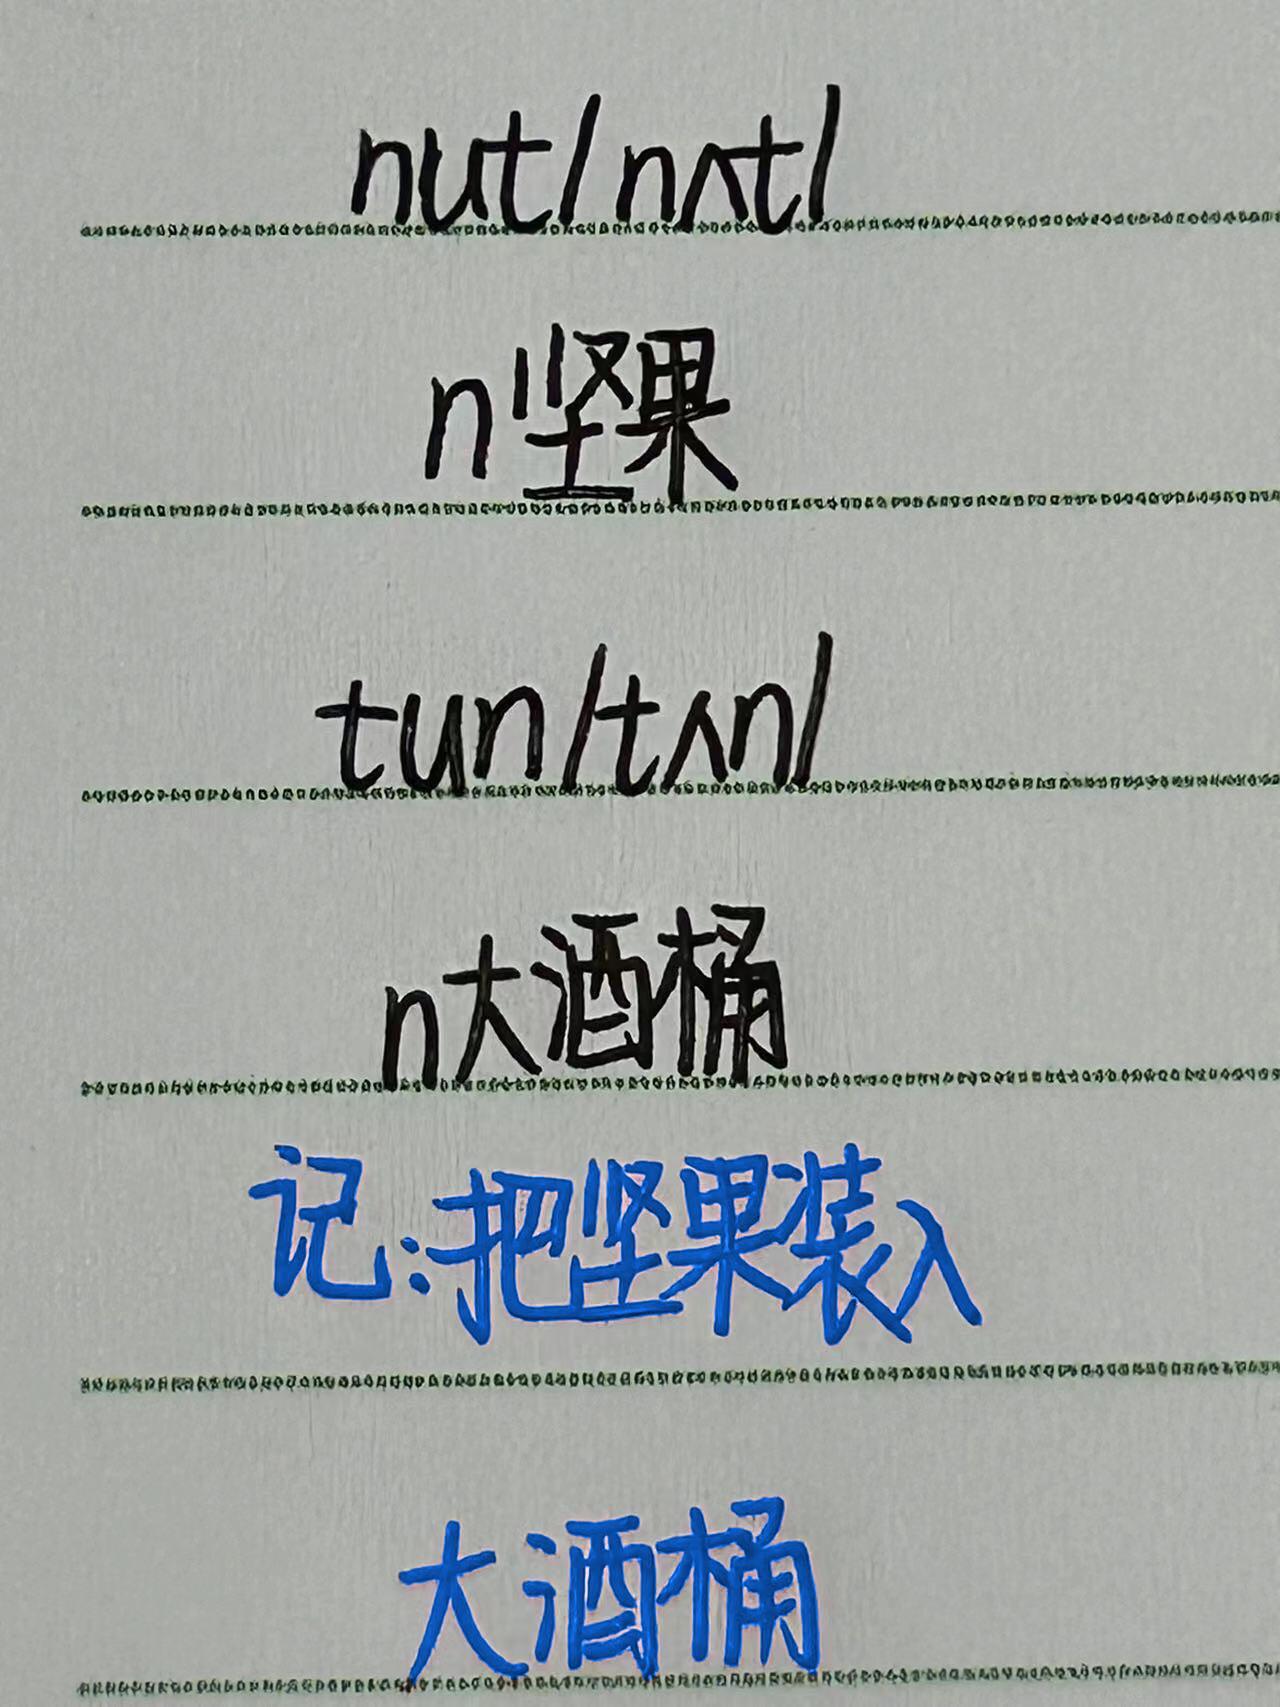 nut/nʌt/
n坚果
tun/tʌn/
n大酒桶
记:把坚果装入
大酒桶